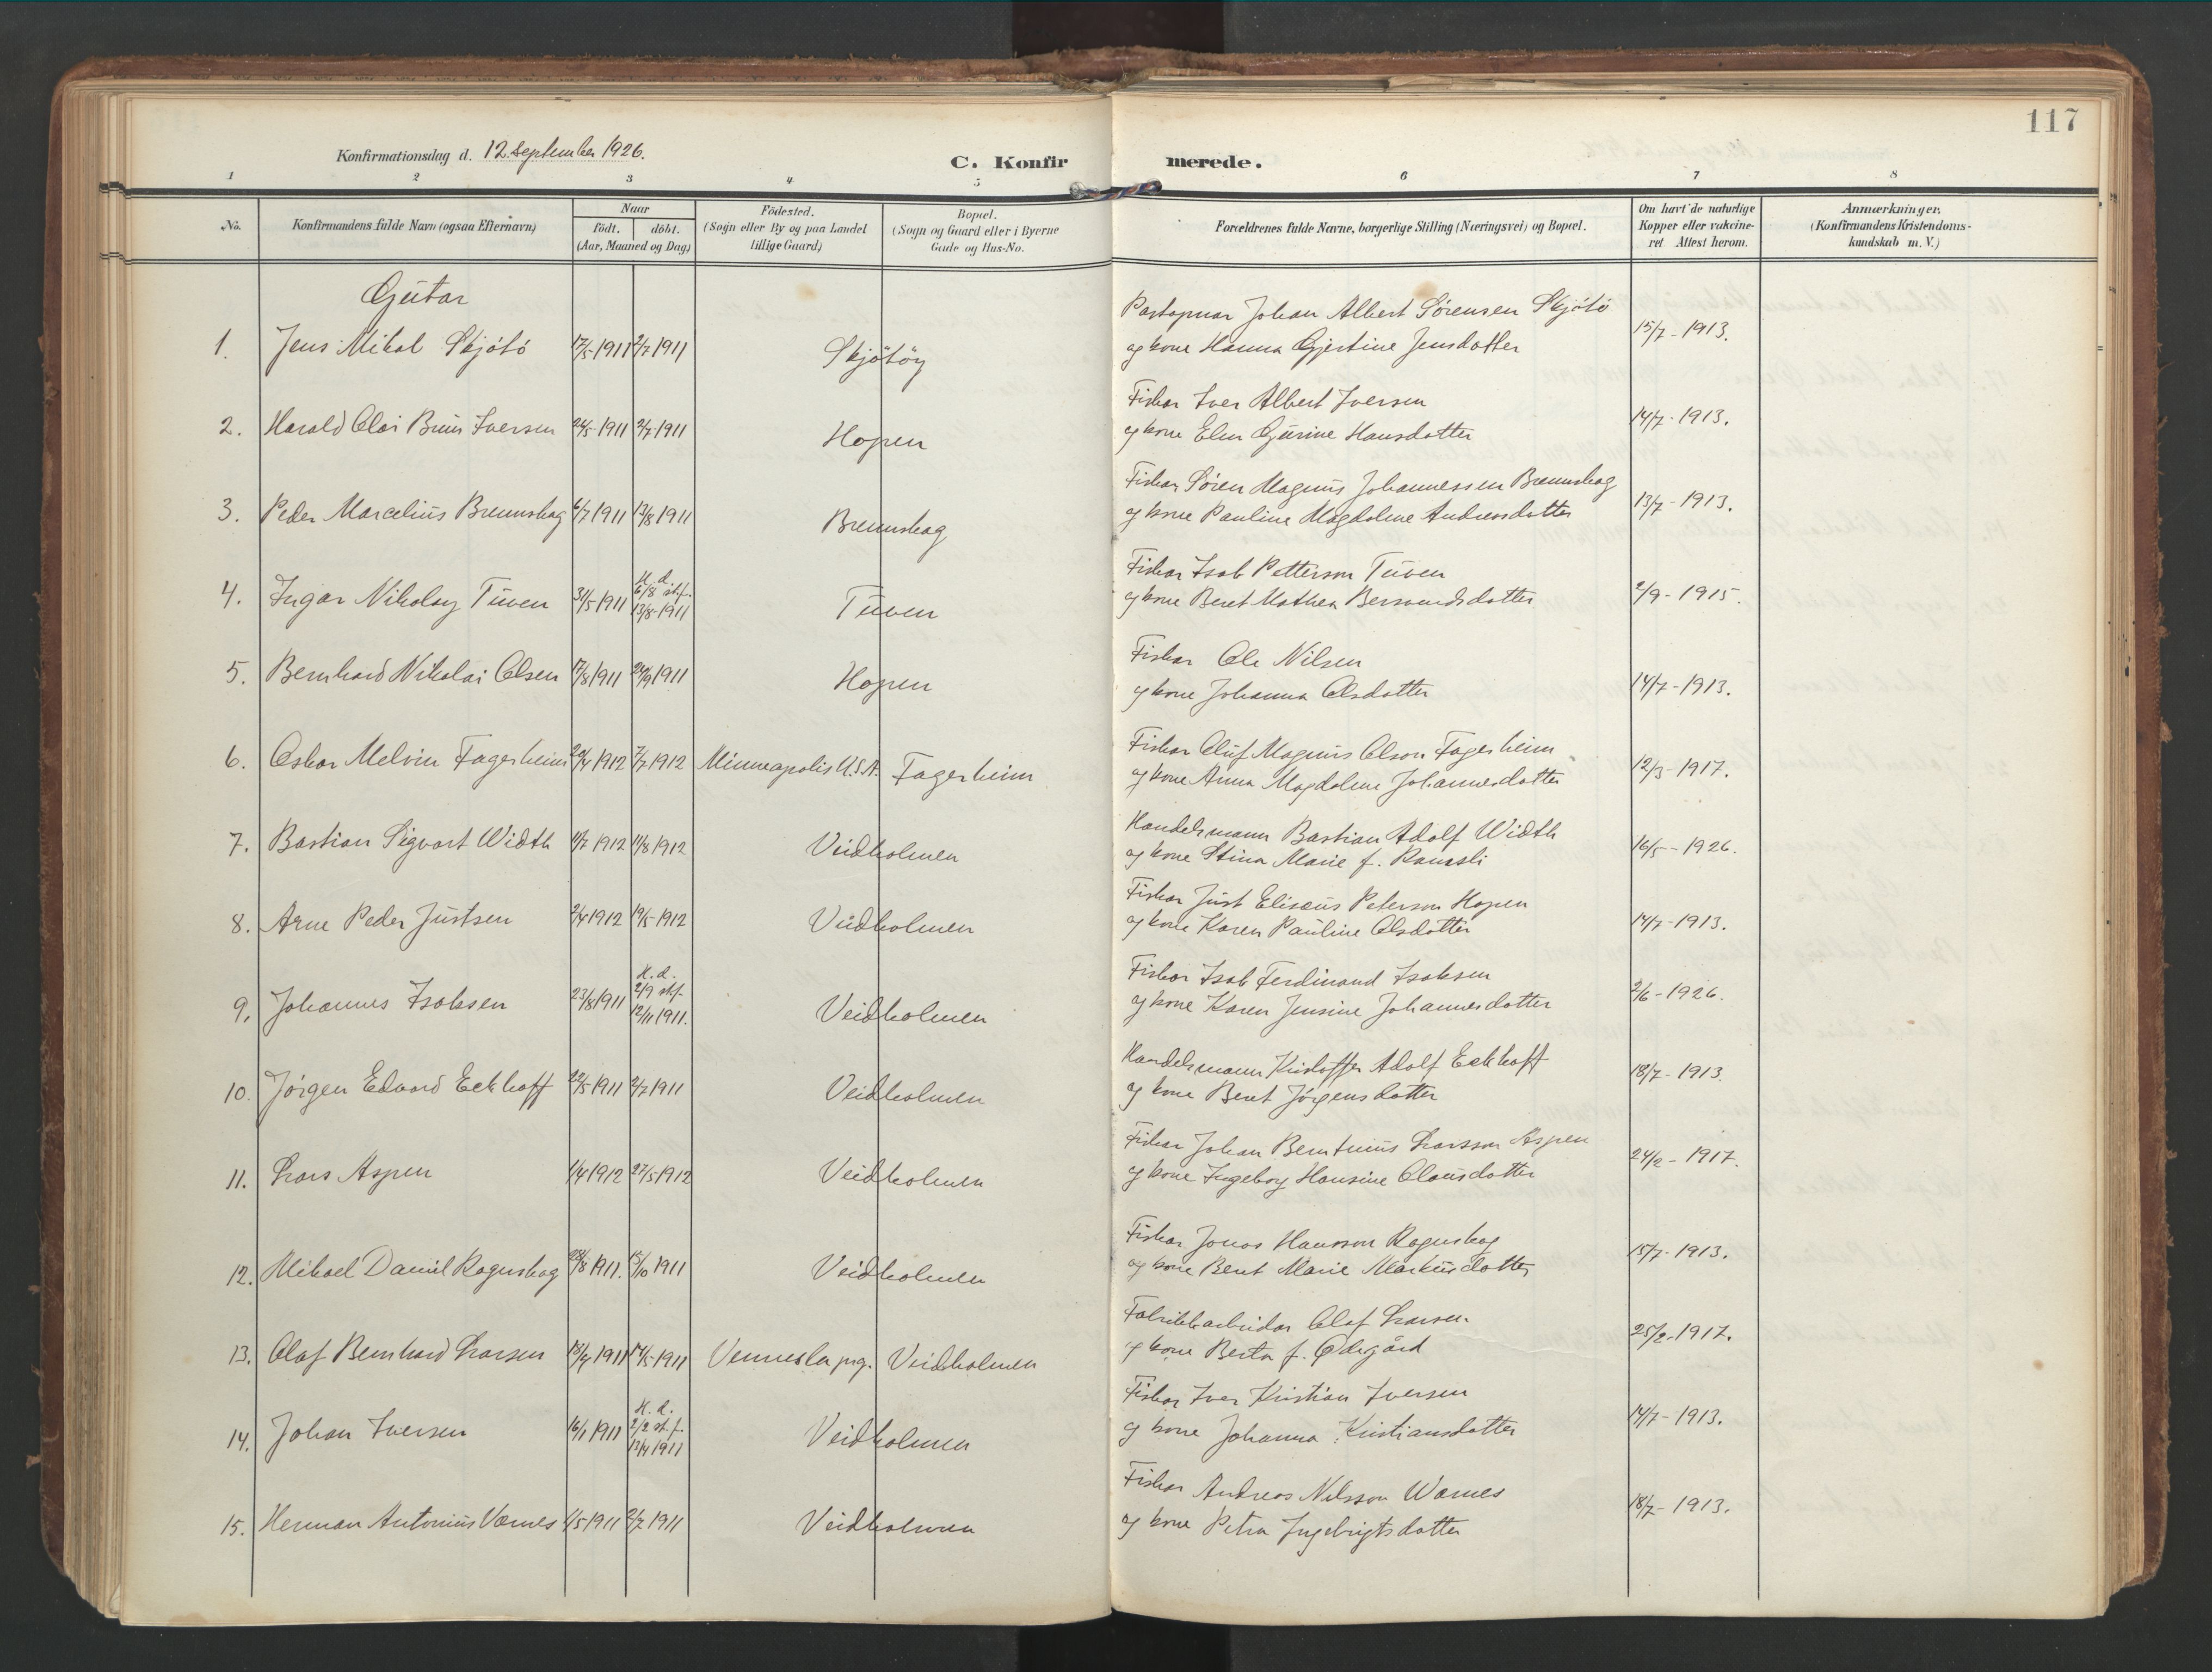 117
Konfirmationsdag d. 12. september 1926.
C. Konfirmerede.
1 2 3 4 5 6 7 8
No.
Konfirmandens fulde Navn (ogsaa Efternavn)
Naar
födt. döbt.
(Aar, Maaned og Dag)
Födested.
(Sogn eller By og paa Landet
tillige Gaard)
Bopæl.
(Sogn og Gaard eller i Byerne
Gade og Hus-No.
Forældrenes fulde Navne, borgerlige Stilling (Næringsvei) og Bopæl.
Om havt de naturlige
Kopper eller vakcine-
ret Attest herom.
Anmærkninger,
(Konfirmandens Kristendoms-
kundskab m. V.)
Gutar
1. Jens Mikal Skjötö 17/5-1911 2/7 1911 Skjötöy
Johan Albert Sörensen Skjötö
og kone Hanna Gjertine Jensdatter
15/7-1913.
2. Harald Olai Bruun Iversen 24/5-1911 2/7 1911 Hopen
Fiskar Iver Albert Iversen
og kone Elen Gurine Hansdatter
14/7-1913.
3. Peder Marcelius Brennskag 6/7 1911 13/8 1911 Brennskag
Fiskar Sören Magnus Johannessen Brennskag
og kone Pauline Magdalene Andreasdatter
13/7-1913.
4. Ingar Nikolay Tuven 31/5 1911 H. d. 6/8 stf. 13/8-1911 Tuven
Fiskar Isak Petterson Tuven
og kone Beret Mathea Bersvendsdatter
2/9-1915.
5. Bernhard Nikolai Olsen 17/8 1911 24/9 1911 Hopen
Fiskar Ole Nilsen
og kone Johanna Olsdatter
14/7-1913.
6. Oskar Melvin Fagerheim 20/4 1912 7/7 1912 Minneapolis U.S.A. Fagerheim
Fiskar Oluf Magnus Olson Fagerheim
og kone Anna Magdalene Johannesdatter
12/3-1917.
7. Bastian Sigvart Width 11/7 1912 11/8 1912 Veidholmen
Handelsmann Bastian Adolf Width
og kone Stina Marie f. Ramsli
16/5-1926.
8. Arne Peder Justsen 2/4 1912 19/5-1912 Veidholmen
Fiskar Just Elisæus Peterson Hopen
og kone Karen Pauline Olsdatter
14/7-1913.
9. Johannes Isaksen 23/8 1911 H. d. 2/9 stf. 12/11 1911. Veidholmen
Fiskar Isak Ferdinand Isaksen
og kone Karen Jensine Johannesdatter
2/6-1926.
10. Jörgen Edvard Eckhoff 22/5 1911 2/7 1911 Veidholmen
Handelsmann Kristoffer Adolf Eckhoff
og kone Beret Jörgensdatter
18/7-1913.
11. Lars Aspen 1/4 1912 27/5 1912 Veidholmen
Fiskar Johan Berntinius Larsson Aspen
og kone Ingeborg Hansine Clausdatter
24/2-1917.
12. Mikael Daniel Ragnskag 28/8 1911. 15/10 1911 Veidholmen
Fiskar Jonas Hansson Ragnskag
og kone Beret Marie Markusdatter
15/7-1913.
13. Olaf Bernhard Larsen 18/4 1911 14/5-1911 Vennesla prg. Veidholmen
Fabrikkarbeidar Olaf Larsen
og kone Berta f. Ödegård
25/2-1917.
14. Johan Iversen 16/1 1911 H. d. 2/2 st.f. 13/4 1911 Veidholmen
Fiskar Iver Kristian Iversen
og kone Johanna Kristiansdatter
14/7-1913.
15. Herman Antonius Værnes 1/5 1911 2/7 1911 Veidholmen
Fiskar Andreas Nilsson Wærnes
og kone Petra Ingebrigtsdatter
18/7-1913.